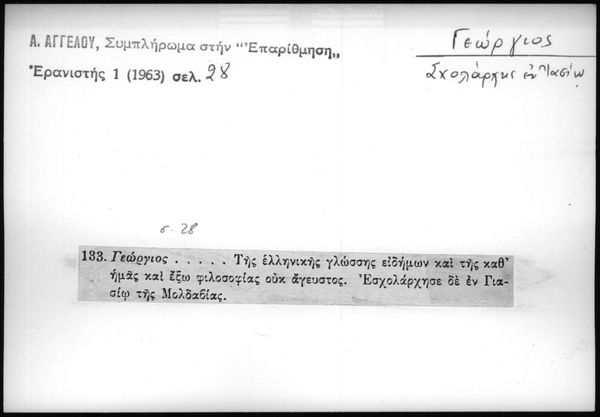 Α. ΑΓΓΕΛΟΥ, Συμπλήρωμα στήν "Ἐπαρίθμηση„
Ἐρανιστής 1 (1963) σελ. 28
Γεώργιος
Σχολάρχης ἐν Ἰασίῳ
σ. 28
133. Γεώργιος . . . . . Τῆς ἑλληνικῆς γλώσσης εἰδήμων καὶ τῆς καθ'
ἡμᾶς καὶ ἔξω φιλοσοφίας οὐκ ἄγευστος. Ἐσχολάρχησε δὲ ἐν Για-
σίῳ τῆς Μολδαβίας.